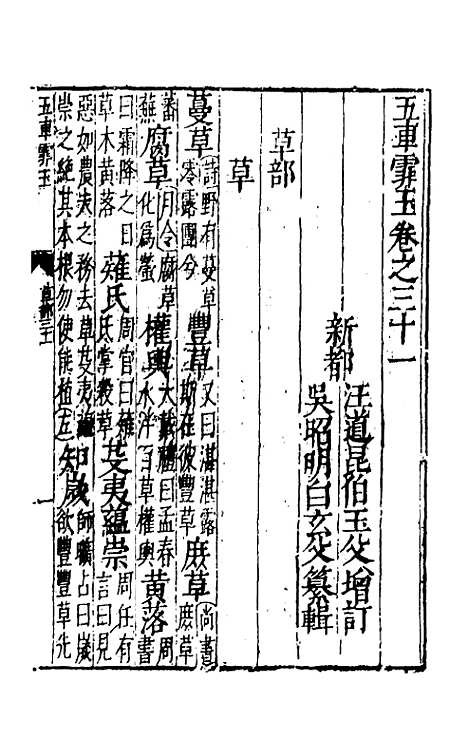 五車霏玉卷之三十一
新都
汪道昆伯玉父增訂
吳昭明白玄父纂輯
草部
草
蔓草詩野有蔓草零露團兮豐草又曰湛湛露斯在彼豐草庶草尚書庶草
蕃蕪腐草月令腐草化為螢權輿大戴禮曰孟春冰泮百草權輿黃落周書
曰霜降之日草木黃落薙氏周官曰薙氏掌殺草芟夷蘊崇周任有言曰見
惡如農夫之務去草芟夷蘊崇之絕其本根勿使能植左知歲師曠占曰歲欲豐豐草先
五車霏玉 草部三十一 一